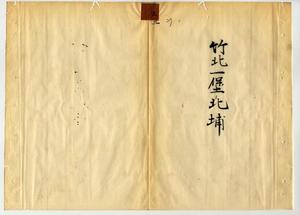 竹北一堡北埔